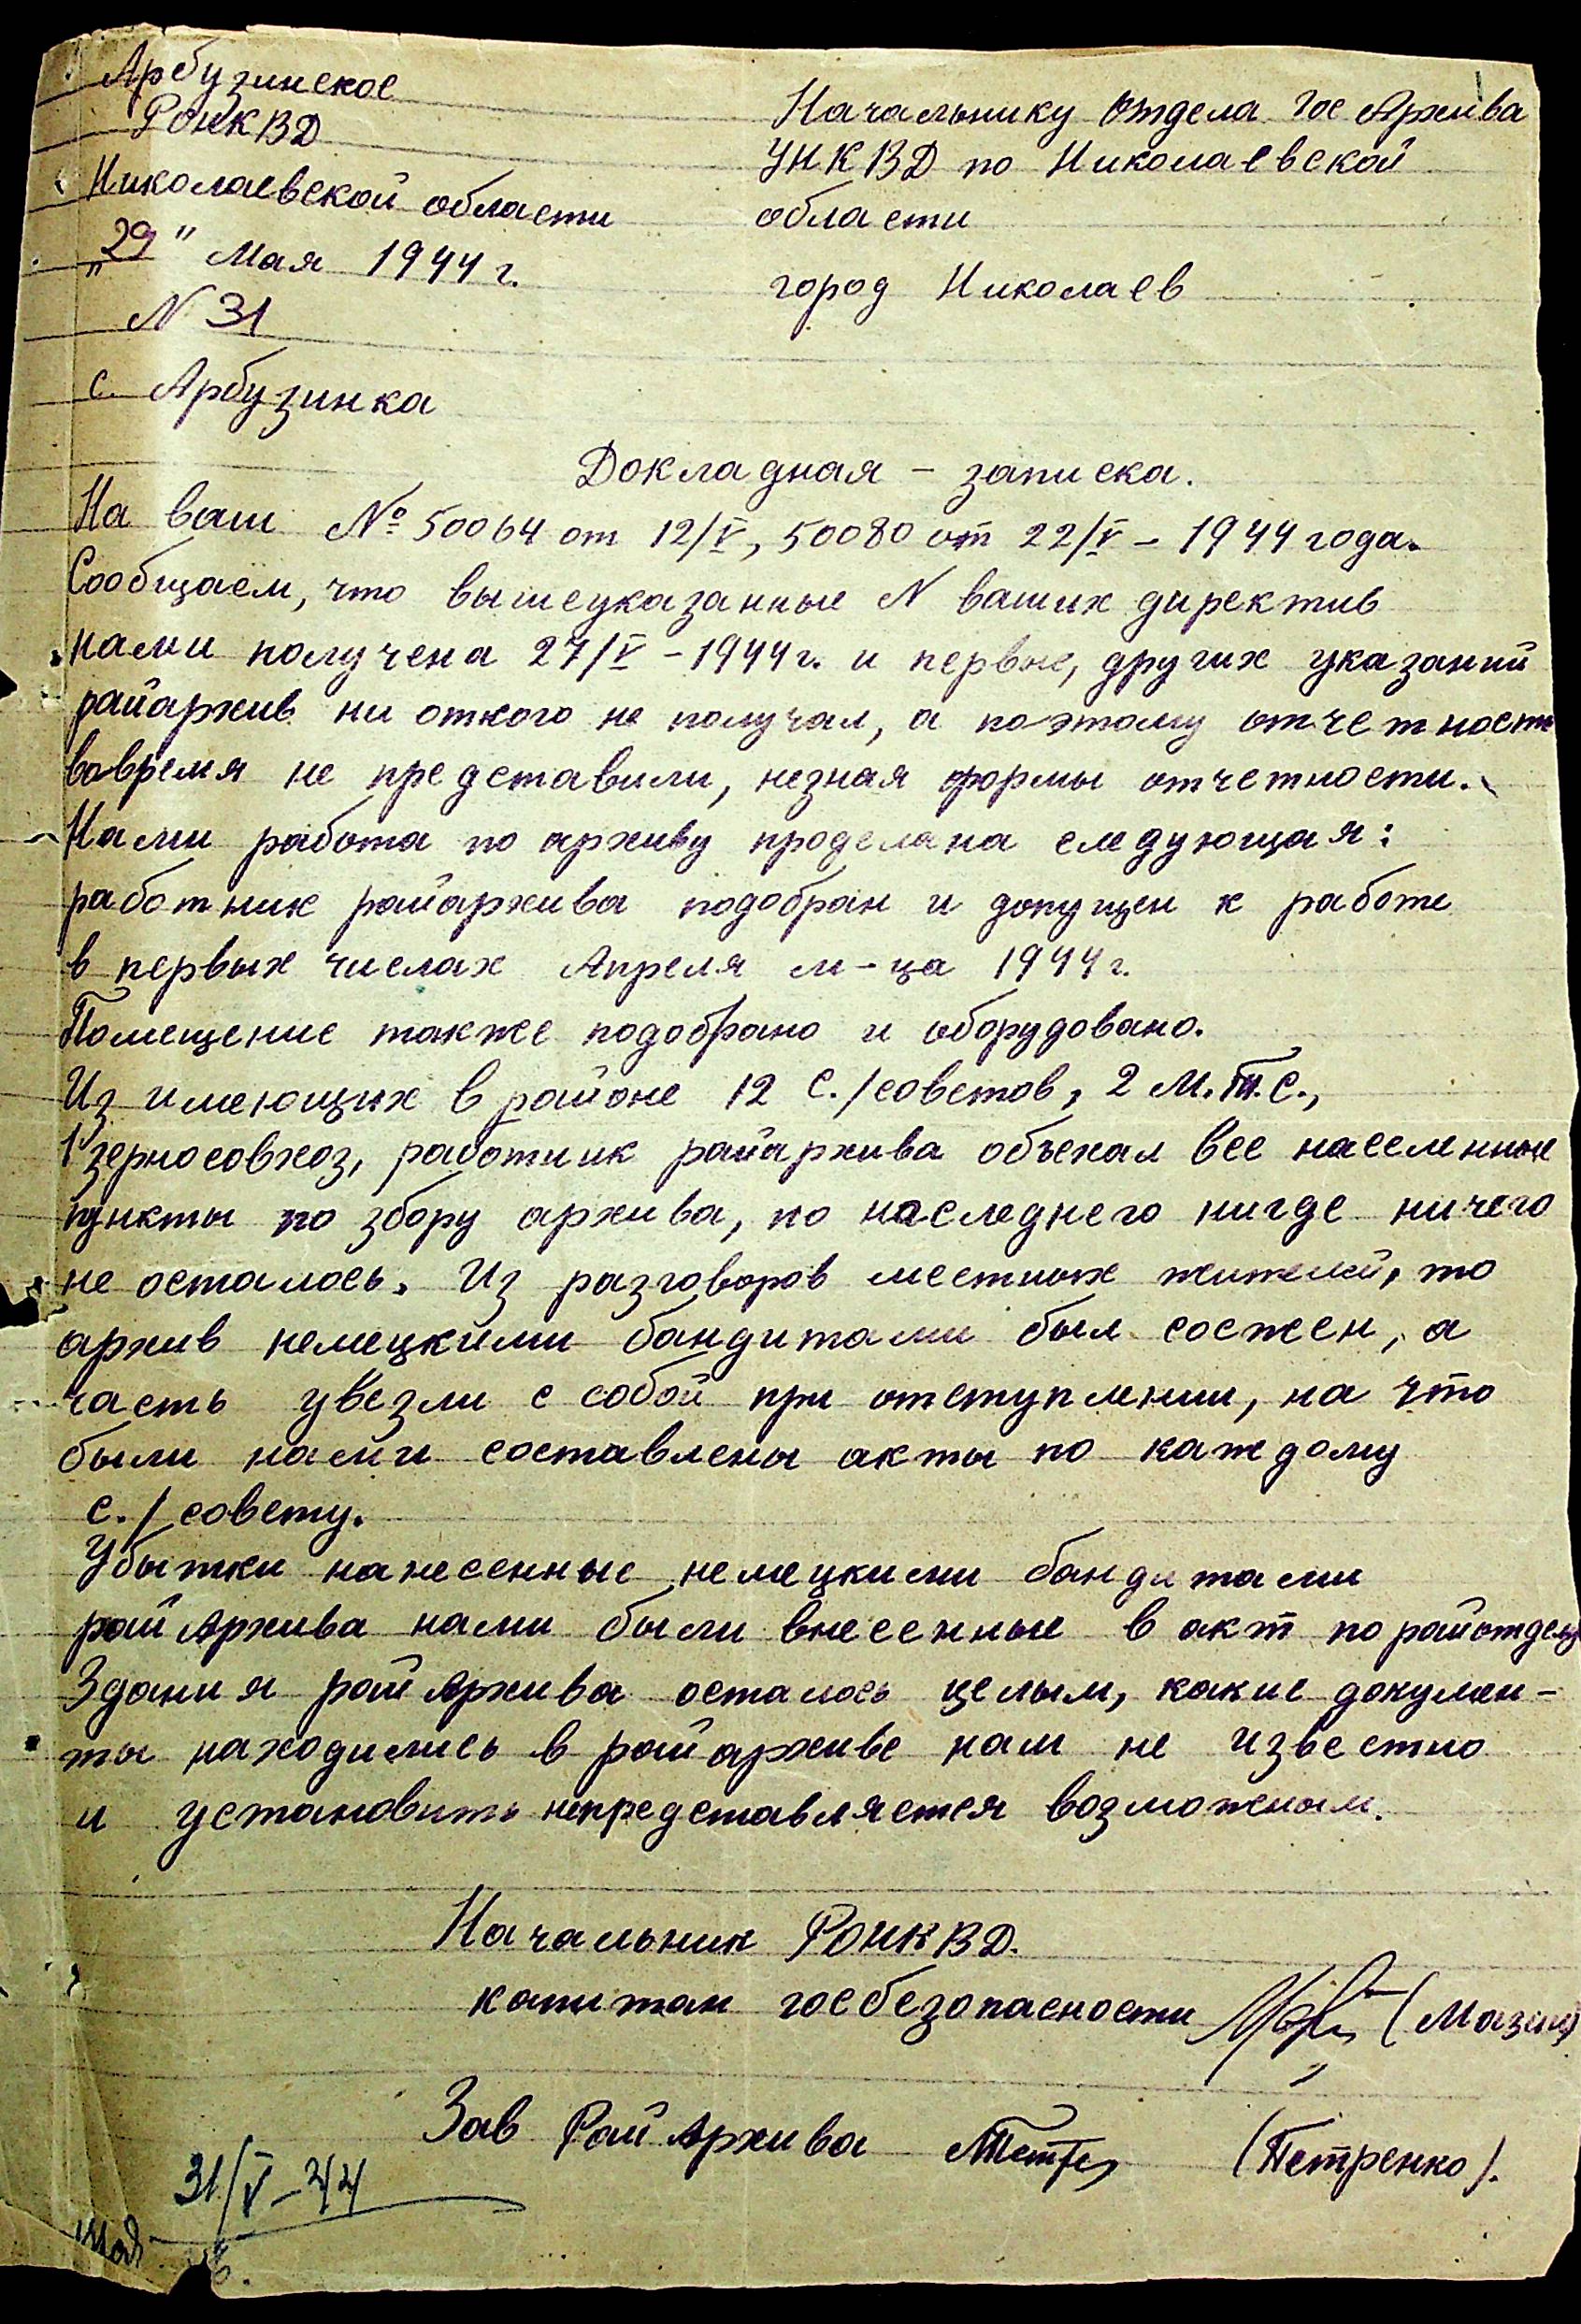 Арбузинское
РОНКВД
Николаевской области
"29" Мая 1944 г.
N 31
с. Арбузинка
Начальнику Отдела Гос Архива
УНКВД по Николаевской
области
город Николаев
Докладная - записка.
На ваш № 50064 от 12/V, 50080 от 22/V - 1944 года.
Сообщаем, что вышеуказанные N ваших директив
нами получена 27/V - 1944 г. и первые, других указаний
райархив ни откого не получал, а поэтому отчетность
вовремя не представили, незная формы отчетности.
Нами работа по архиву проделана следующая:
работник райархива подобран и допущен к работе
в первых числах Апреля м-ца 1944 г.
Помещение также подобрано и оборудовано.
Из имеющих в районе 12 с./советов, 2 М.т.с.,
1 зерносовхоз, работник райархива объехал все населенные
пункты по збору архива, но наследнего нигде ничего
не осталось. Из разговоров местных жителей, то
архив немецкими бандитами был сосжен, а
часть увезли с собой при отступлении, на что
были нами составлены акты по каждому
с./совету.
Убытки нанесенные немецкими бандитами
рай Архива нами были внесенные в акт по райотделу
Здания рай Архива осталось целым, какие докумен-
ты находились в райархиве нам не известно
и установить непредставляется возможным.
Начальник РОНКВД.
капитан госбезопасности (Мазин)
Зав Рай Архива (Петренко).
31/V-44